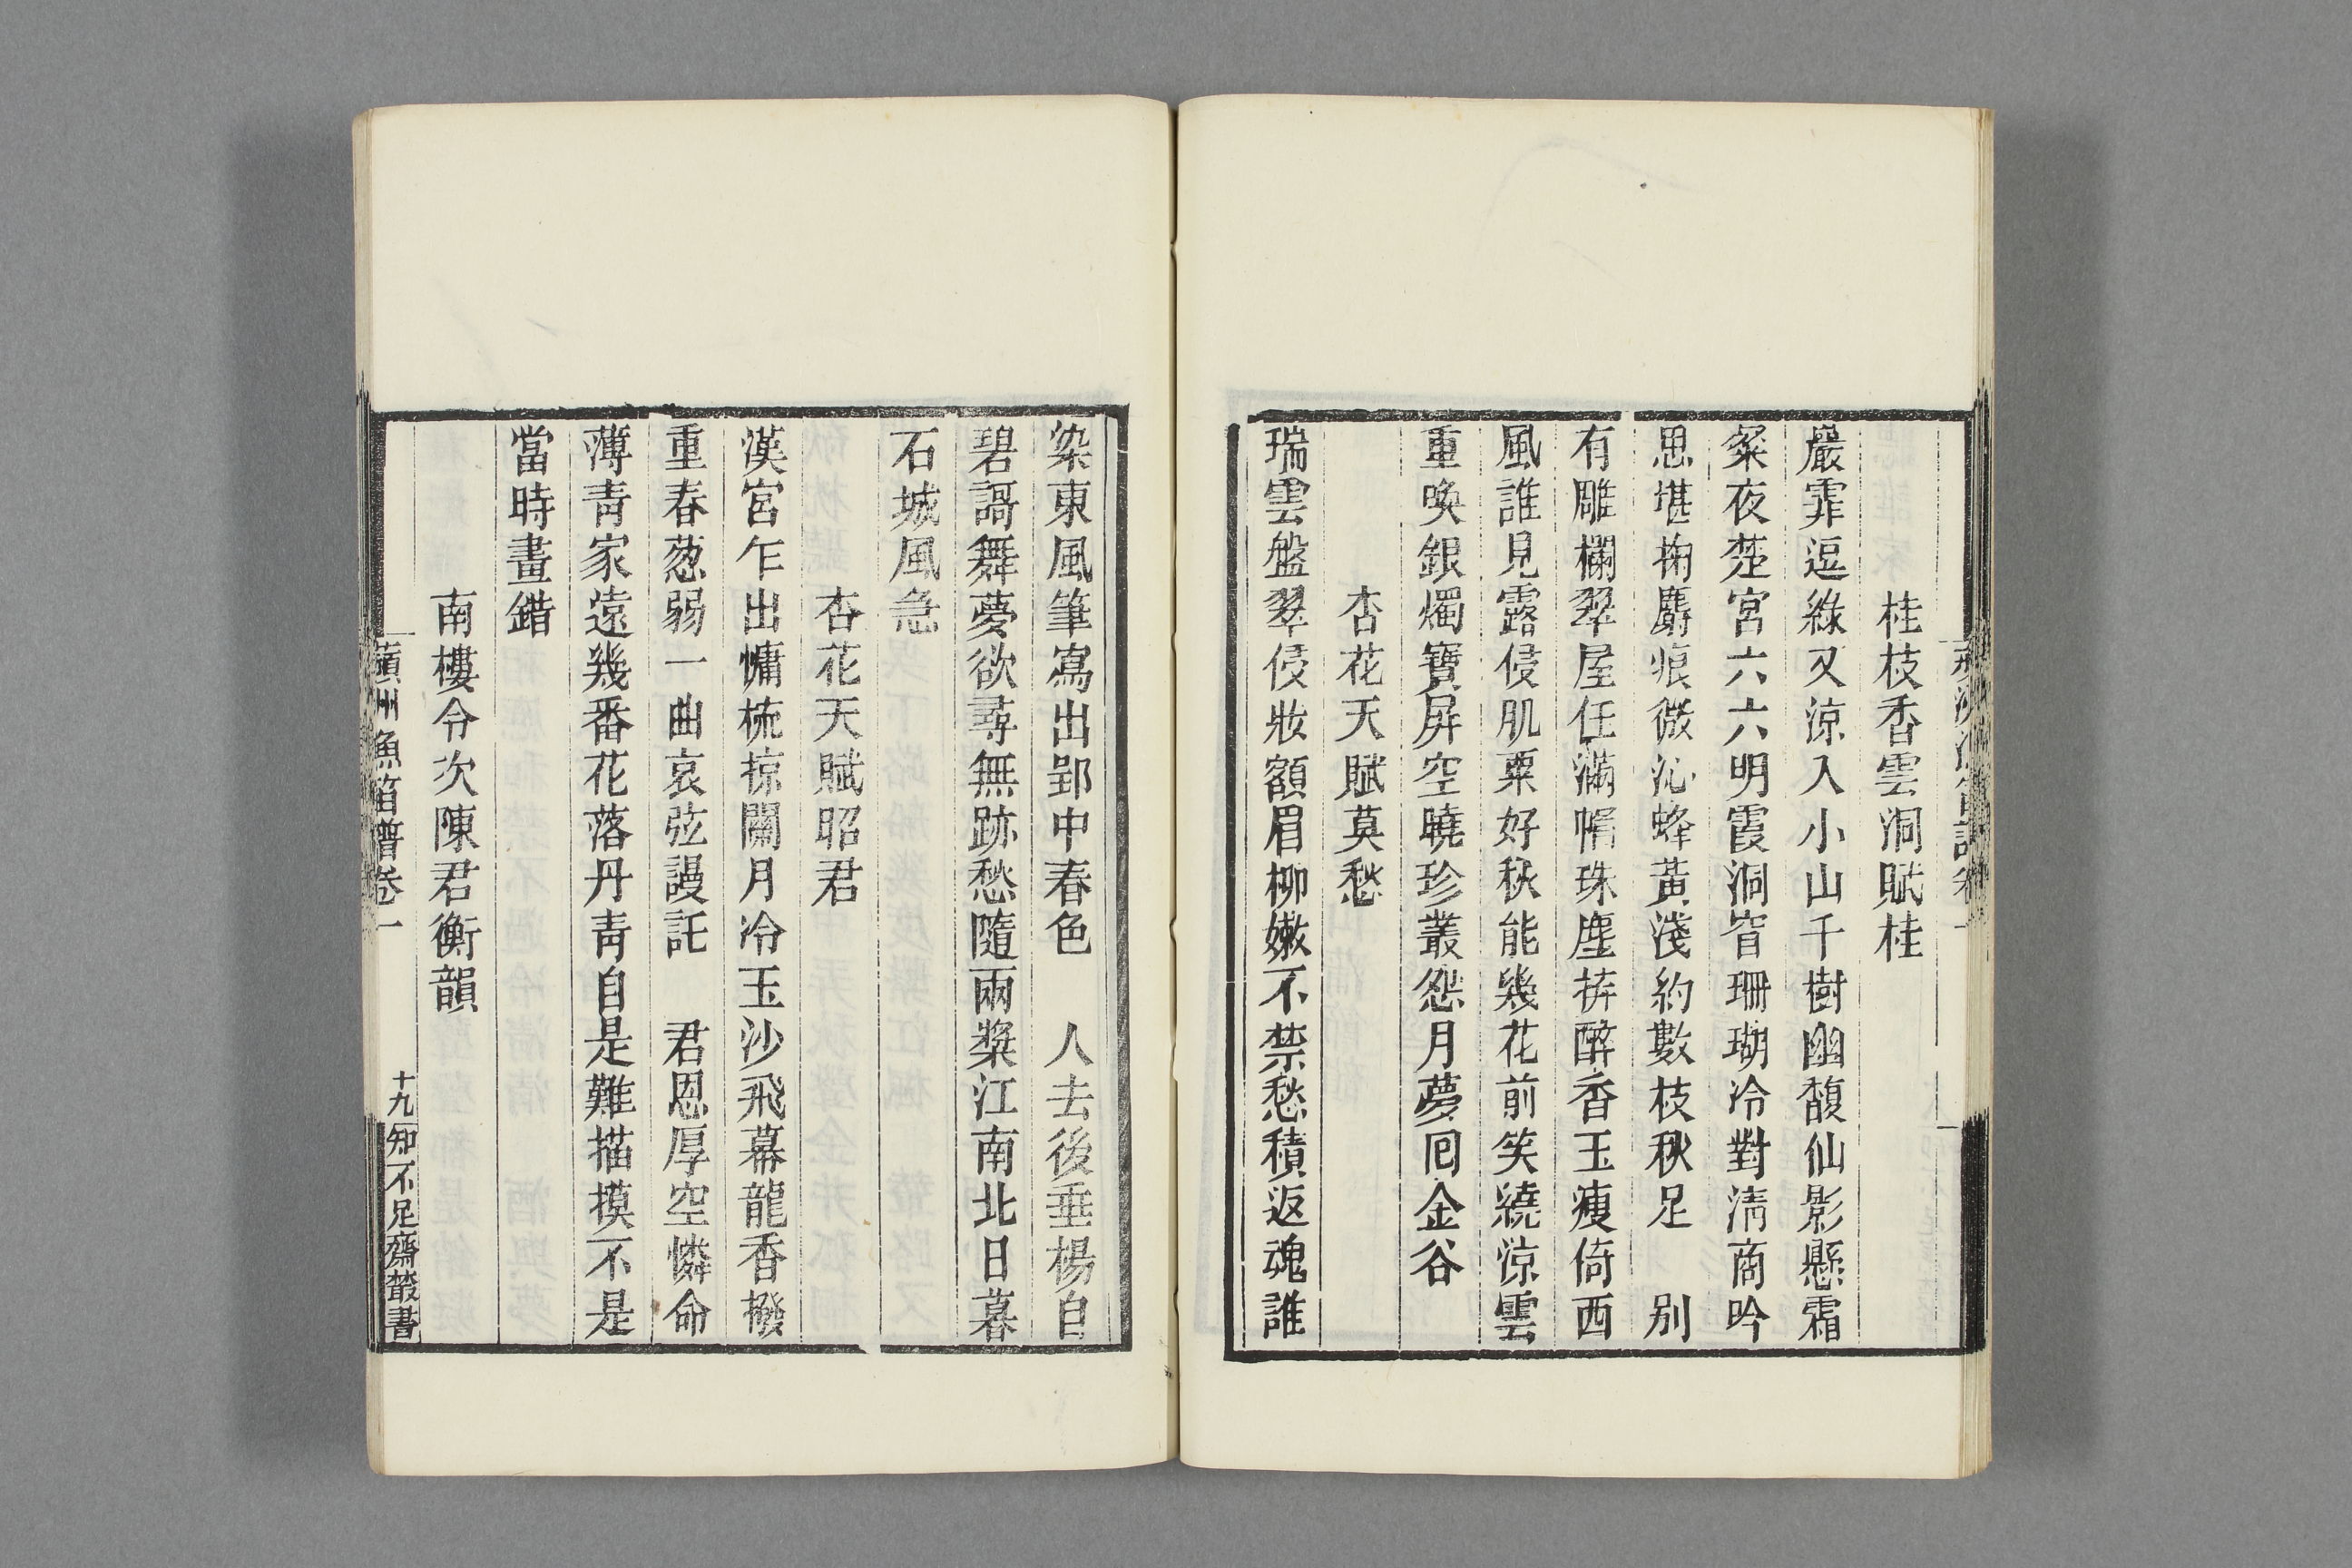 桂枝香雲洞賦桂
嚴霏逗綠又涼入小山千樹幽馥仙影懸霜
粲夜楚宮六六明霞洞窅珊瑚冷對淸商吟
思堪掬麝痕微沁蜂黃淺約數枝秋足　別
有雕欄翠屋任滿㡌珠塵拚醉香玉瘦倚西
風誰見露侵肌粟好秋能幾花前笑繞涼雲
重喚銀燭寶屏空曉珍叢怨月夢囘金谷
杏花天賦莫愁
瑞雲盤翠侵妝額眉柳嫩不禁愁積返魂誰
染東風筆寫出郢中春色　人去後垂楊自
碧謌舞夢欲尋無跡愁隨兩槳江南北日暮
石城風急
杏花天賦昭君
漢宮乍出慵梳掠關月冷玉沙飛幕龍香撥
重春葱弱一曲哀弦謾託　君恩厚空憐命
薄靑家遠幾番花落丹靑自是難描摸不是
當時畫錯
南樓令次陳君衡韻
蘋州漁笛譜卷一
十九
知不足齋叢書